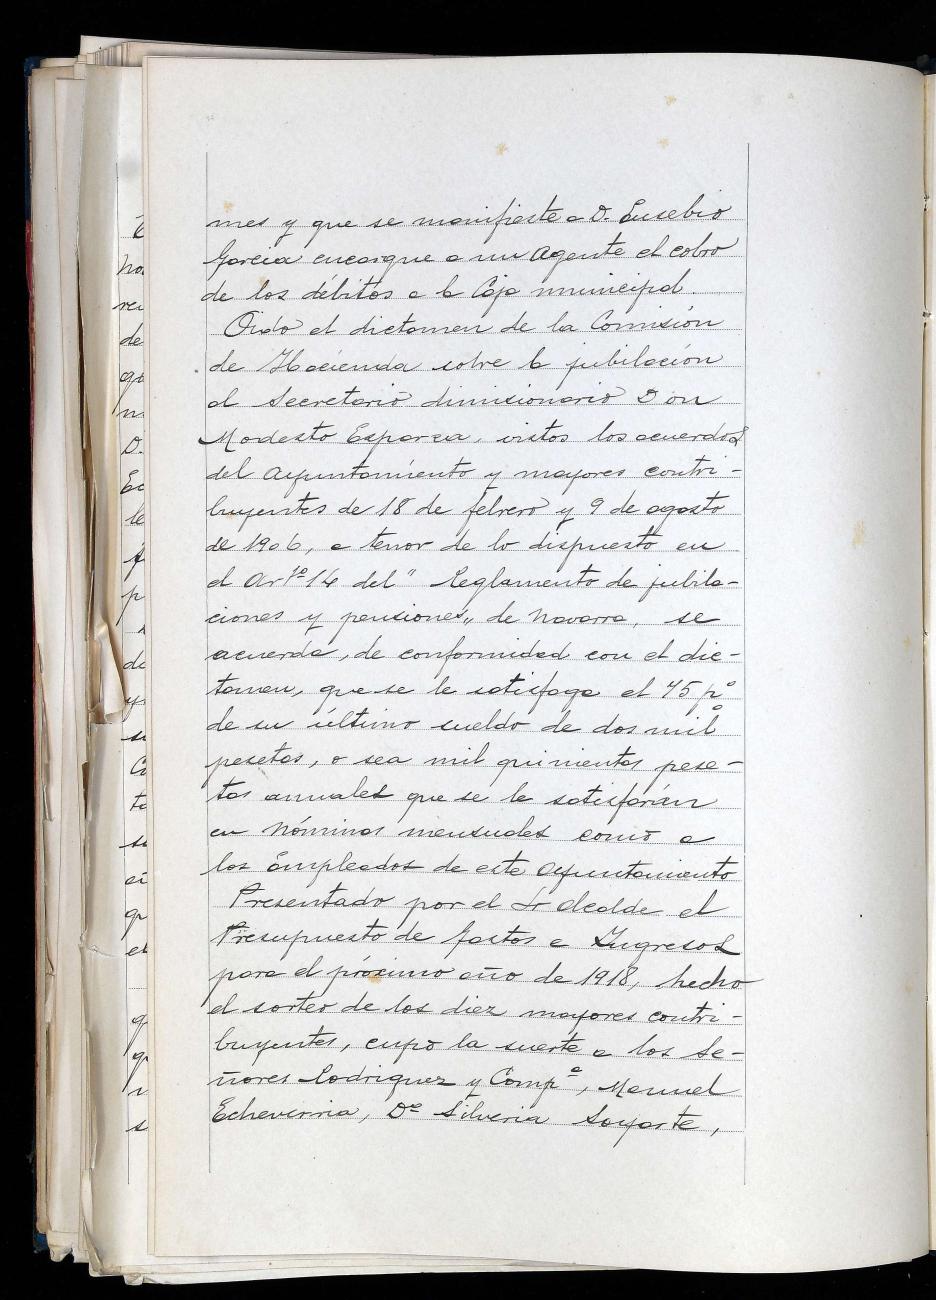 mes y que se manifieste a D. Eusebio
Garcia encargue a un Agente el cobro
de los débitos a la Caja municipal.
Oido el dictamen de la Comisión
de Hacienda sobre la jubilación
al Secretario dimisionario Don
Modesto Esparza, vistos los acuerdos
del Ayuntamiento y mayores contri-
buyentes de 18 de febrero y 9 de agosto
de 1906, a tenor de lo dispuesto en
el Artº 14 del "Reglamento de jubila-
ciones y pensiones" de Navarra, se
acuerda, de conformidad con el dic-
tamen, que se le satisfaga el 75 pº
de su último sueldo de dos mil
pesetas, o sea mil quinientas pese-
tas anuales que se le satisfarán
en nóminas mensuales como a
los Empleados de este Ayuntamiento
Presentado por el Sr Alcalde el
Presupuesto de Gastos e Ingresos
para el próximo año de 1918, hecho
el sorteo de los diez mayores contri-
buyentes, cupo la suerte a los Se-
ñores Rodriguez y Compª, Manuel
Echeverria, Dª Silveria Goyarte,